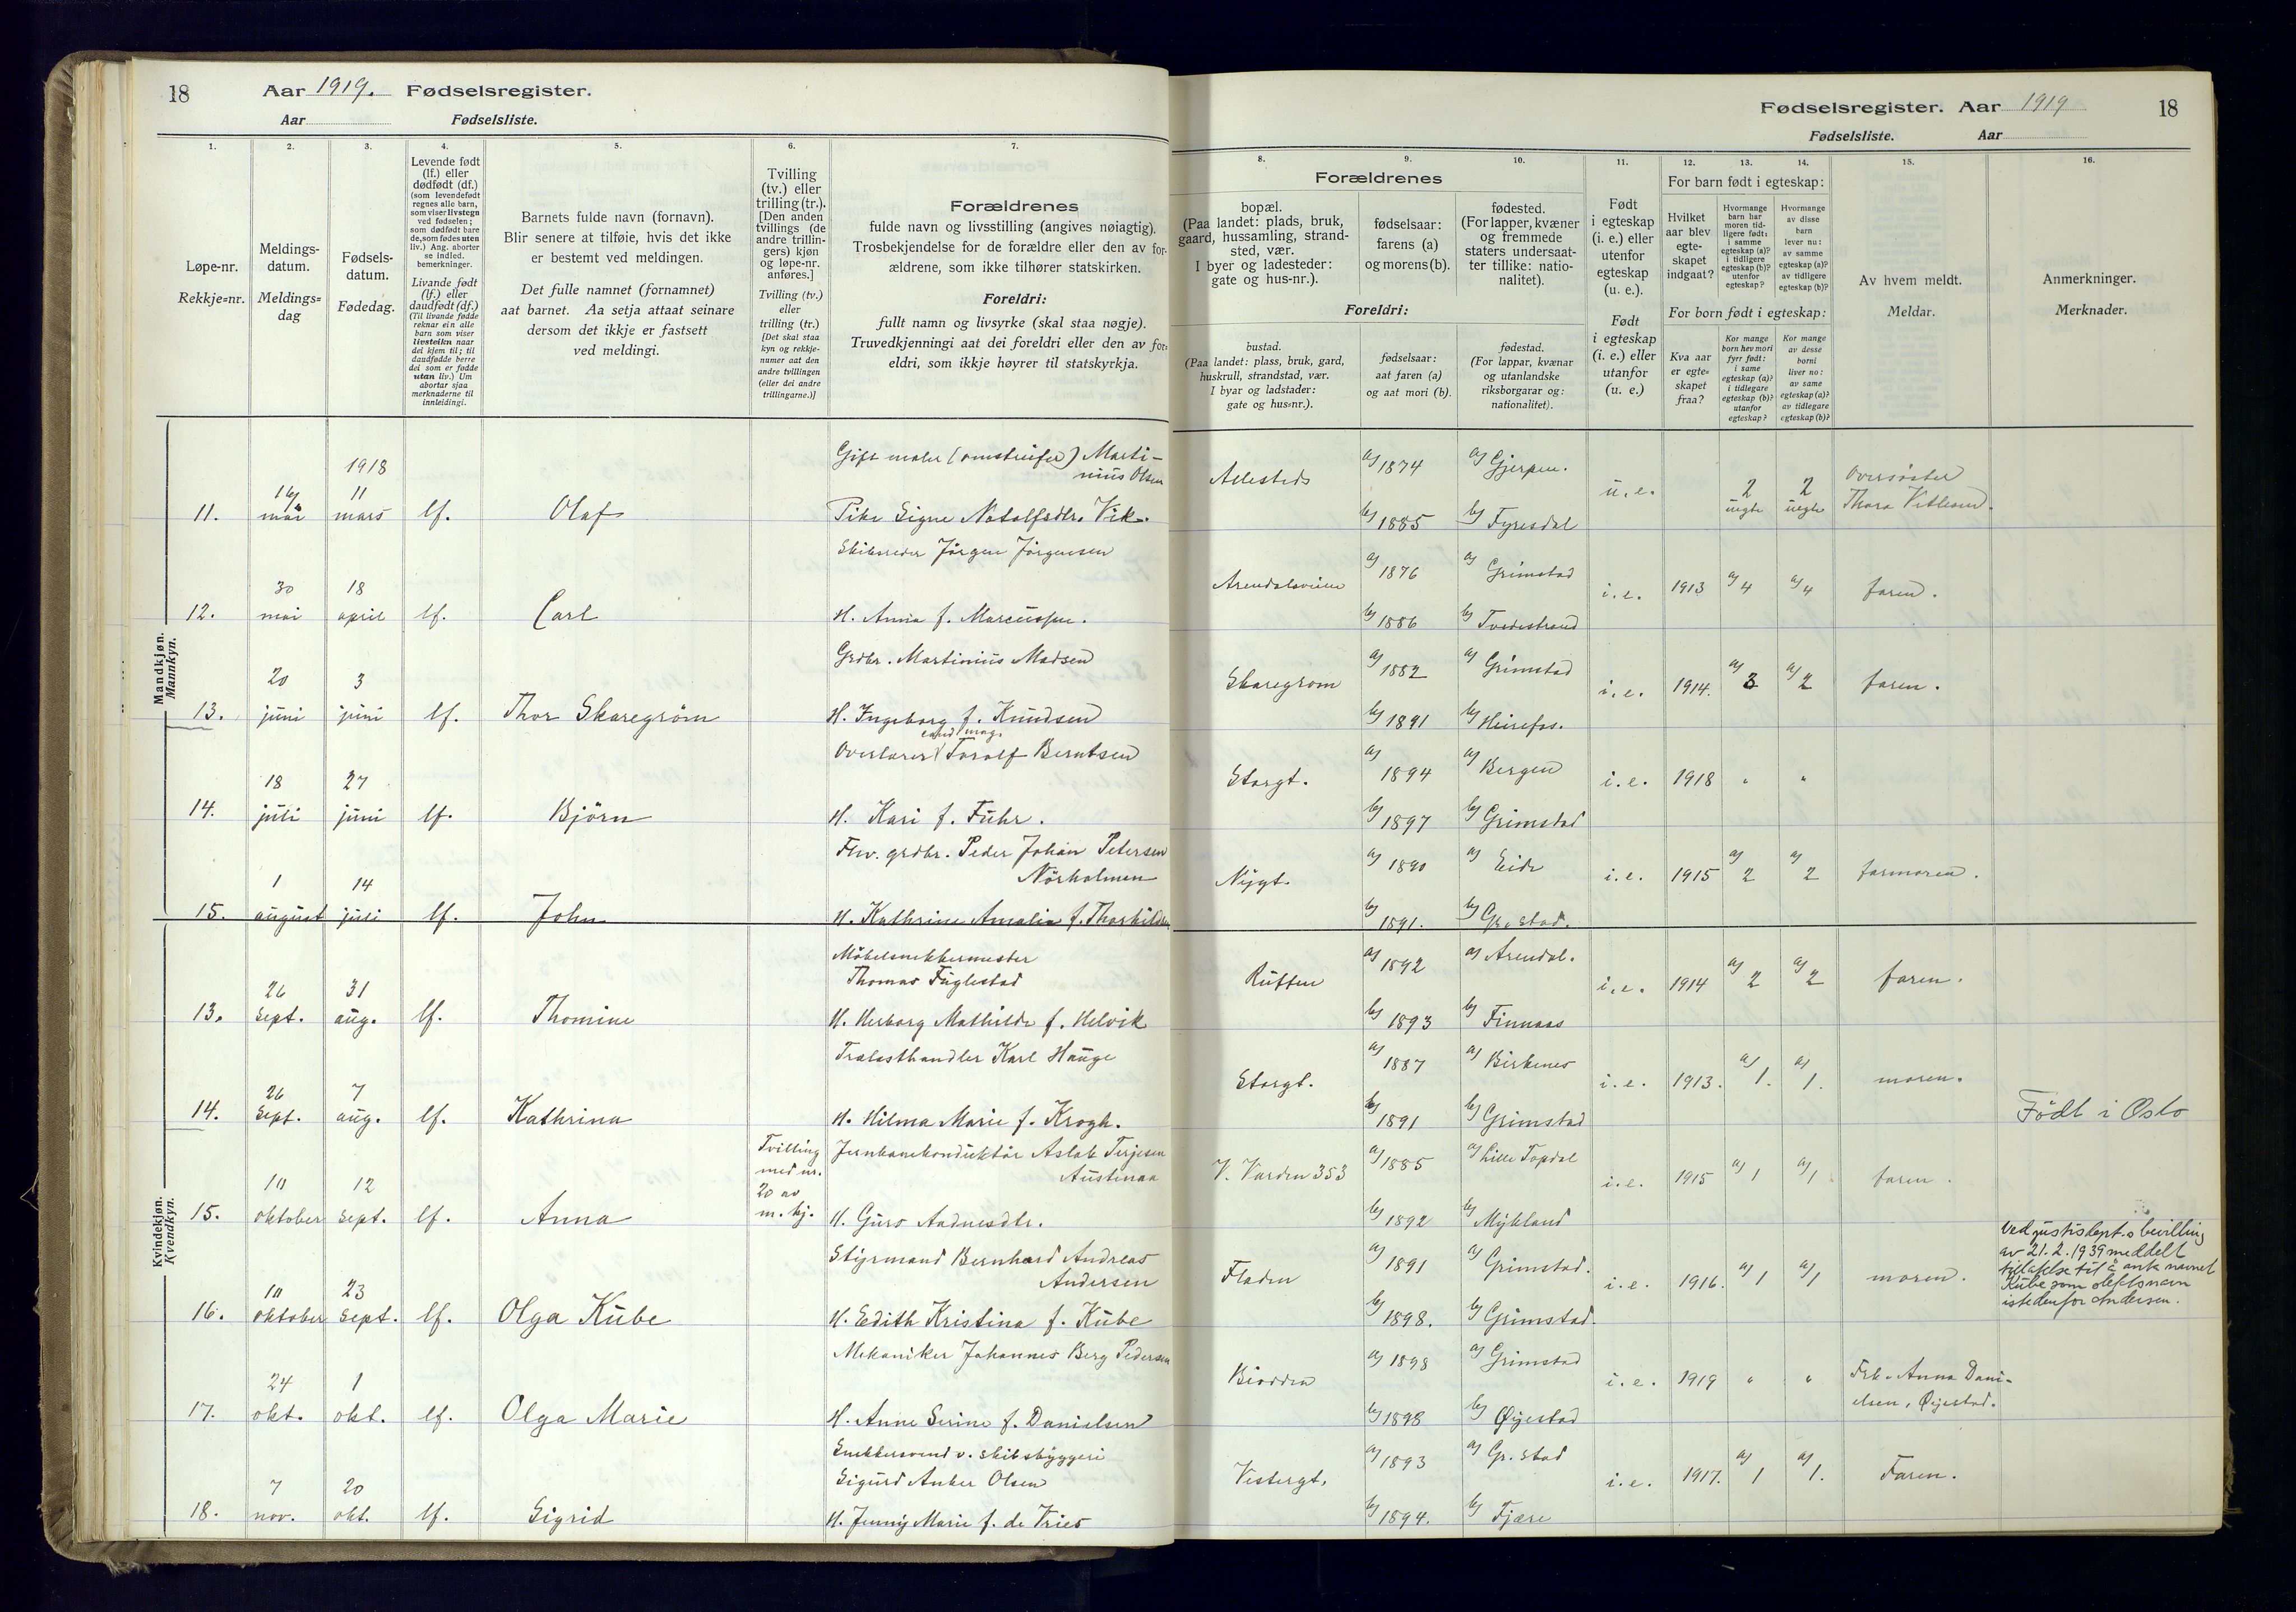 18
Aar 1919. Fødselsregister.
Aar Fødselsliste.
1.
Løpe-nr.
Rekkje=nr.
2.
Meldings-
datum.
Meldings=
dag
3.
Fødsels-
datum.
Fødedag.
4.
Levende født
(lf.) eller
dødfødt (df.)
(som levendefødt
regnes alle barn,
som viser livstegn
ved fødselen;
som dødfødt bare
de, som fødes uten
liv.) Ang. aborter
se indled.
bemerkninger.
Livande født
(lf.) eller
daudfødt (df.)
(Til livande fødde
reknar ein alle
barn som viser
livsteikn naar
dei kjem til; til
daudfødde berre
dei som er fødde
utan liv.) Um
abortar sjaa
merknaderne til
innleidingi.
5.
Barnets fulde navn (fornavn).
Blir senere at tilføie, hvis det ikke
er bestemt ved meldingen.
Det fulle namnet (fornamnet)
aat barnet. Aa setja attaat seinare
dersom det ikkje er fastsett
ved meldingi.
6.
Tvilling
(tv.) eller
trilling (tr.).
[Den anden
tvillings (de
andre trillin-
gers) kjøn
og løpe-nr.
anføres.]
Tvilling (tv.)
eller
trilling (tr.)
[Det skal staa
kyn og rekkje-
numer aat den
andre tvillingen
(eller dei andre
trillingarne.)]
7.
Forældrenes
fulde navn og livsstilling (angives nøiagtig).
Trosbekjendelse for de forældre eller den av for-
ældrene, som ikke tilhører statskirken.
Foreldri:
fullt namn og livsyrke (skal staa nøgje).
Truvedkjenningi aat dei foreldri eller den av for-
eldri, som ikkje høyrer til statskyrkja.
Mandkjøn.
Mannkyn.
1918
Gift maler (omstreifer) Marti-
nius Olsen
11. 16/ mai 11 mars lf. Olaf
Pike Signe Notolfsdtr. Vik.
Skibsreder Jörgen Jörgensen
12. 30 mai 18 april lf. Carl
H. Anna f. Marcussen.
Grdbr. Martinius Madsen
13. 20 juni 3 juni lf. Thor Skaregröm
H. Ingeborg f. Knudsen
cand mag.
Overlærer Toralf Berntsen
14. 18 juli 27 juni lf. Björn
H. Kari f. Fuhr.
Fhv. grdbr. Peder Johan Petersen
Nörholmen
15. 1 august 14 juli lf. John
H. Kathrine Amalia f. Thorkildsen
Kvindekjøn.
Kvendkyn.
Möbelsnekkermester
Thomas Fuglestad
13. 26 Sept. 31 aug. lf. Thomine
H. Herborg Mathilde f. Helvik
Trælasthandler Karl Hauge
14. 26 Sept. 7 aug. lf. Kathrina
H. Hilma Marie f. Krogh.
Tvilling
med nr.
20 av
m. kj.
Jernbanekonduktör Aslak Terjesen
Austenaa
15. 10 oktober 12 Sept. lf. Anna
H. Guro Aadnesdtr.
Styrmand Bernhard Andreas
Andersen
16. 10 oktober 23 Sept. lf. Olga Kube
H. Edith Kristina f. Kube
Mekaniker Johannes Berg Pedersen
17. 24 okt. 1 okt. lf. Olga Marie
H. Anne Serine f. Danielsen
Snekkersvend v. skibsbyggeri
Sigurd Anker Olsen
18. 7 nov. 20 okt. lf. Sigrid
H. Jenny Marie f. de Vries
Fødselsregister. Aar 1919
18
Fødselsliste. Aar
8.
Forældrenes
bopæl.
(Paa landet: plads, bruk,
gaard, hussamling, strand-
sted, vær.
I byer og ladesteder:
gate og hus-nr.).
Foreldri:
bustad.
(Paa landet: plass, bruk, gard,
huskrull, strandstad, vær.
I byar og ladstader:
gate og hus=nr.).
9.
fødselsaar:
farens (a)
og morens (b).
fødselsaar:
aat faren (a)
og aat mori (b).
10.
fødested.
(For lapper, kvæner
og fremmede
staters undersaat-
ter tillike: natio-
nalitet).
fødestad.
(For lappar, kvænar
og utanlandske
riksborgarar og:
nationalitet).
11.
Født
i egteskap
(i. e.) eller
utenfor
egteskap
(u. e.).
Født
i egteskap
(i. e.) eller
utanfor
(u. e.)
12.
For barn født i egteskap:
Hvilket
aar blev
egte-
skapet
indgaat?
For born født i egteskap:
Kva aar
er egte=
skapet
fraa?
13.
Hvormange
barn har
moren tid-
ligere født:
i samme
egteskap (a)?
i tidligere
egteskap (b)?
utenfor
egteskap?
Kor mange
born hev mori
fyrr født:
i same
egteskap (a)?
i tidlegare
egteskap (b)?
utanfor
egteskap?
14.
Hvormange
av disse
barn
lever nu:
av samme
egteskap (a)?
av tidligere
egteskap (b)?
Kor mange
av desse
borni
liver no:
av same
egteskap (a)?
av tidlegare
egteskap (b)?
15.
Av hvem meldt.
Meldar.
16.
Anmerkninger.
Merknader.
a) 1874 a) Gjerpen. u. e. 2 uegte 2 uegte
Thora
b) 1885 b) Fyresdal
Arendalsveien a) 1876 a) Grimstad i. e. 1913 a) 4 a) 4 faren.
b) 1886 b) Tvedestrand
Skaregrøm a) 1882 a) Grimstad i. e. 1914. a) 3 a) 2 faren.
b) 1891 b) Heirefos.
Storgt. a) 1894 a) Bergen i. e. 1918 " "
b) 1897 b) Grimstad
Nygt. a) 1890 a) Eide i. e. 1915 a) 2 a) 2 farmoren.
b) 1891. b) Gr.stad.
Rutten a) 1892 a) Arendal. i. e. 1914 a) 2 a) 2 faren.
b) 1893 b) Finnaas
Storgt. a) 1887 a) Birkenes i. e. 1913. a) 1. a) 1. moren.
b) 1891 b) Grimstad
Födt i Oslo
V. Varden 353 a) 1885 a) Lille Topdal i. e. 1915 a) 1 a) 1 faren.
b) 1892 b) Mykland
Fladen a) 1891 a) Grimstad. i. e. 1916. a) 1 a) 1 moren.
b) 1898. b) Grimstad.
Ved justisdept.s bevilling
av 21.2.1939 meddelt
tillatelse til å anta navnet
Kube som slektsnavn
istedenfor Andersen.
Biodden a) 1898 a) Grimstad i. e. 1919 " " Frk. Anna Dani-
elsen, Øyestad.
b) 1898 b) Øyestad
Vestergt. a) 1893 a) Gr.stad i. e. 1917. a) 1 a) 1. Faren.
b) 1894. b) Fjære